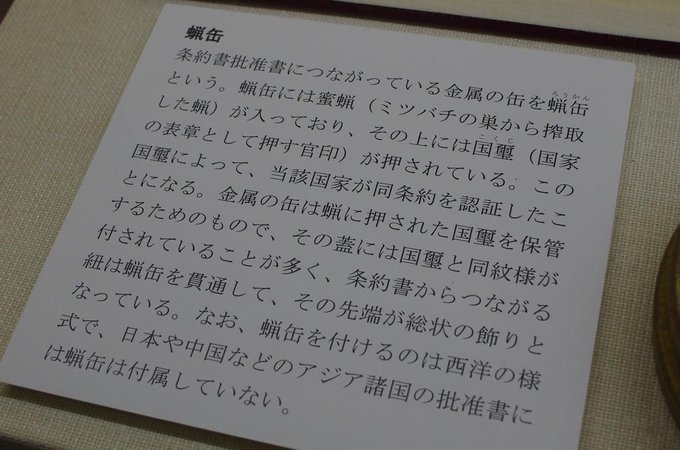 蝋缶
条約書批准書につながっている金属の缶を蝋缶
という。蝋缶には蜜蝋（ミツバチの巣から搾取
した蝋）が入っており、その上には国璽（国家
の表章として押す官印）が押されている。この
国璽によって、当該国家が同条約を認証したこ
とになる。金属の缶は蝋に押された国璽を保管
するためのもので、その蓋には国璽と同紋様が
付されていることが多く、条約書からつながる
紐は蝋缶を貫通して、その先端が総状の飾りと
なっている。なお、蝋缶を付けるのは西洋の様
式で、日本や中国などのアジア諸国の批准書に
は蝋缶は付属していない。